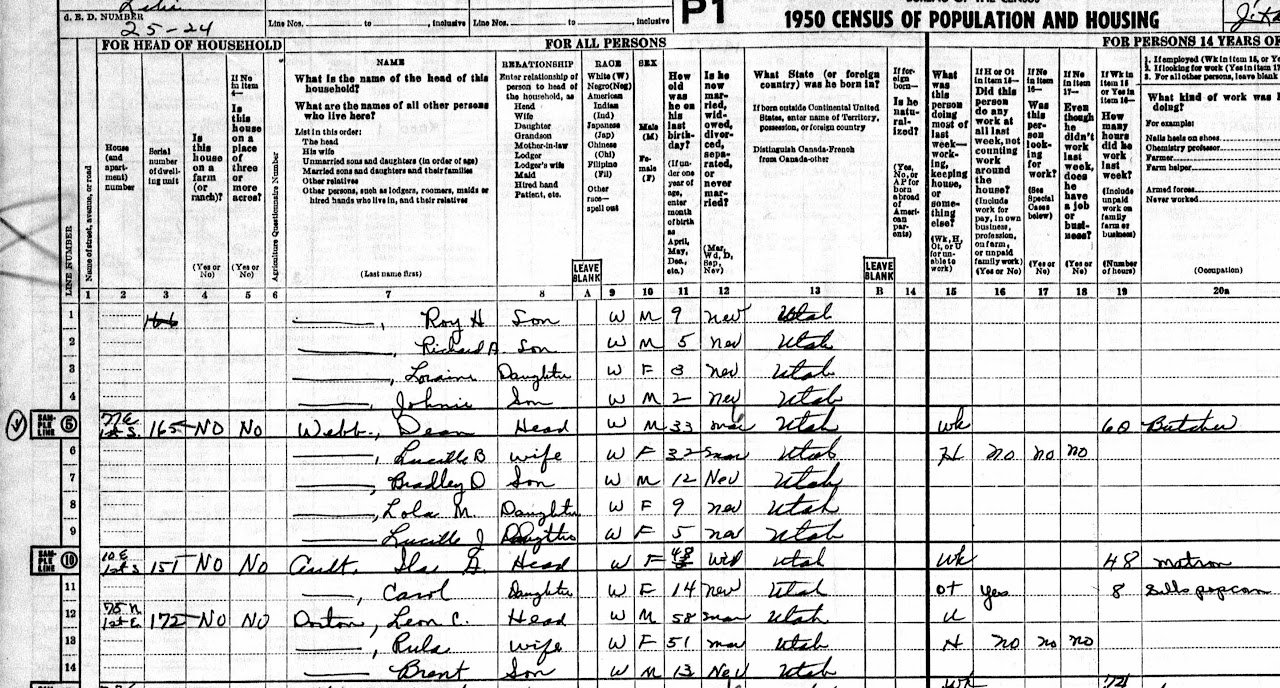 Lehi
d. E. D. NUMBER
25-24
Line Nos. to , inclusive Line Nos. to , inclusive
P1
BUREAU OF THE CENSUS
1950 CENSUS OF POPULATION AND HOUSING
FOR HEAD OF HOUSEHOLD
FOR ALL PERSONS
FOR PERSONS 14 YEARS O
LINE NUMBER
Name of street, avenue, or road
House (and apartment) number
Serial number of dwelling unit
Is this house on a farm (or ranch)?
(Yes or No)
If No in item 4—
Is this house on a place of three or more acres?
(Yes or No)
Agriculture Questionnaire Number
NAME
What is the name of the head of this household?
What are the names of all other persons who live here?
List in this order:
The head
His wife
Unmarried sons and daughters (in order of age)
Married sons and daughters and their families
Other relatives
Other persons, such as lodgers, roomers, maids or hired hands who live in, and their relatives
(Last name first)
RELATIONSHIP
Enter relationship of person to head of the household, as
Head
Wife
Daughter
Grandson
Mother-in-law
Lodger
Lodger's wife
Maid
Hired hand
Patient, etc.
LEAVE BLANK
RACE
White (W)
Negro (Neg)
American Indian (Ind)
Japanese (Jap)
Chinese (Chi)
Filipino (Fil)
Other race—spell out
SEX
Male (M)
Female (F)
How old was he on his last birthday?
(If under one year of age, enter month of birth as April, May, Dec., etc.)
Is he now married, widowed, divorced, separated, or never married?
(Mar, Wd, D, Sep, Nev)
What State (or foreign country) was he born in?
If born outside Continental United States, enter name of Territory, possession, or foreign country
Distinguish Canada-French from Canada-other
LEAVE BLANK
If foreign born—
Is he naturalized?
(Yes, No, or AP for born abroad of American parents)
What was this person doing most of last week—working, keeping house, or something else?
(Wk, H, Ot, or U for unable to work)
If H or Ot in item 15—
Did this person do any work at all last week, not counting work around the house?
(Include work for pay, in own business, profession, on farm, or unpaid family work)
(Yes or No)
If No in item 16—
Was this person looking for work?
(See Special Cases below)
(Yes or No)
If No in item 17—
Even though he didn't work last week, does he have a job or business?
(Yes or No)
If Wk in item 15 or Yes in item 16—
How many hours did he work last week?
(Include unpaid work on family farm or business)
(Number of hours)
1. If employed (Wk in item 15, or Ye
2. If looking for work (Yes in item 17
3. For all other persons, leave blank
What kind of work was h
doing?
For example:
Nails heels on shoes
Chemistry professor
Farmer
Farm helper
Armed forces
Never worked
(Occupation)
1 2 3 4 5 6 7 8 A 9 10 11 12 13 B 14 15 16 17 18 19 20a
1 166 ——, Roy H Son W M 9 Nev Utah
2 ——, Richard A Son W M 5 nev Utah
3 ——, Loraine Daughter W F 3 nev Utah
4 ——, Johnie Son W M 2 Nev Utah
SAMPLE LINE 5 77 E 1st S. 165 NO No Webb, Dean Head W M 33 mar Utah wk 60 Butcher
6 ——, Lucille B wife W F 32 mar Utah H no no no
7 ——, Bradley D Son W M 12 Nev Utah
8 ——, Lola M. Daughter W F 9 nev Utah
9 ——, Lucille J Daughter W F 5 nev Utah
SAMPLE LINE 10 10 E 1st S 151 NO NO Ault, Head W F 48 Wd utah Wk 48 matron
11 ——, Carol Daughter W F 14 nev Utah OT Yes 8 Sells popcorn
12 75 N. 1st E. 172 NO NO Dorton, Leon C. Head W M 58 mar Utah U
13 ——, Rula wife W F 51 mar Utah H no no no
14 Brent Son W M 13 Nev Utah
Wk 72